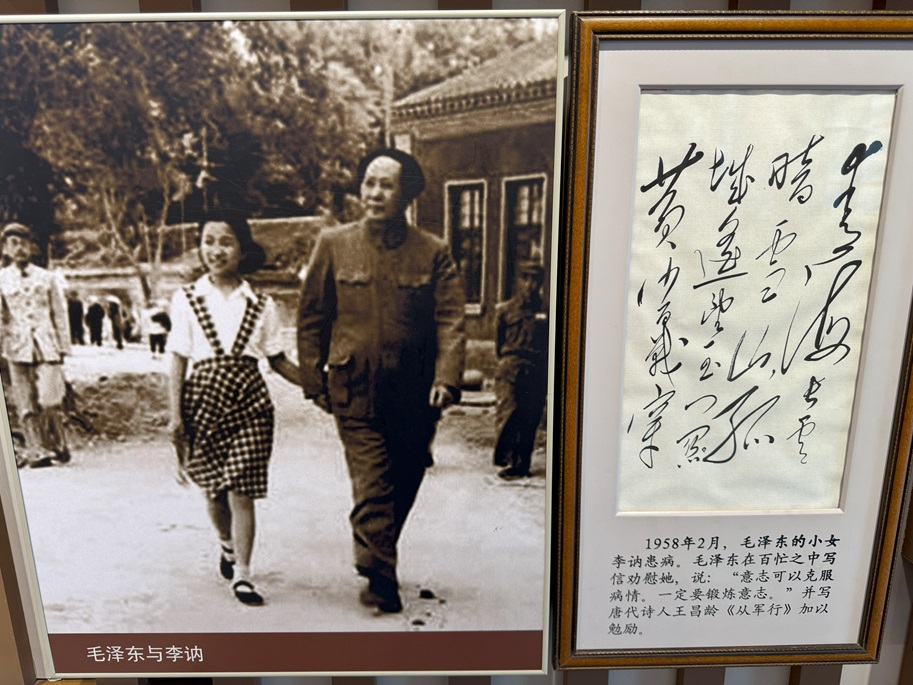 毛泽东与李讷
青海長雲
暗雪山孤
城遥望玉门關
黄沙百戰穿
1958年2月，毛泽东的小女
李讷患病。毛泽东在百忙之中写
信劝慰她，说：“意志可以克服
病情。一定要锻炼意志。”并写
唐代诗人王昌龄《从军行》加以
勉励。